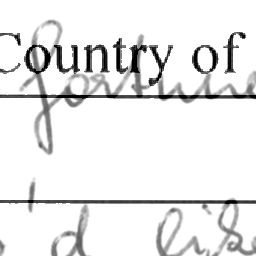 Country of
fortune
'd like